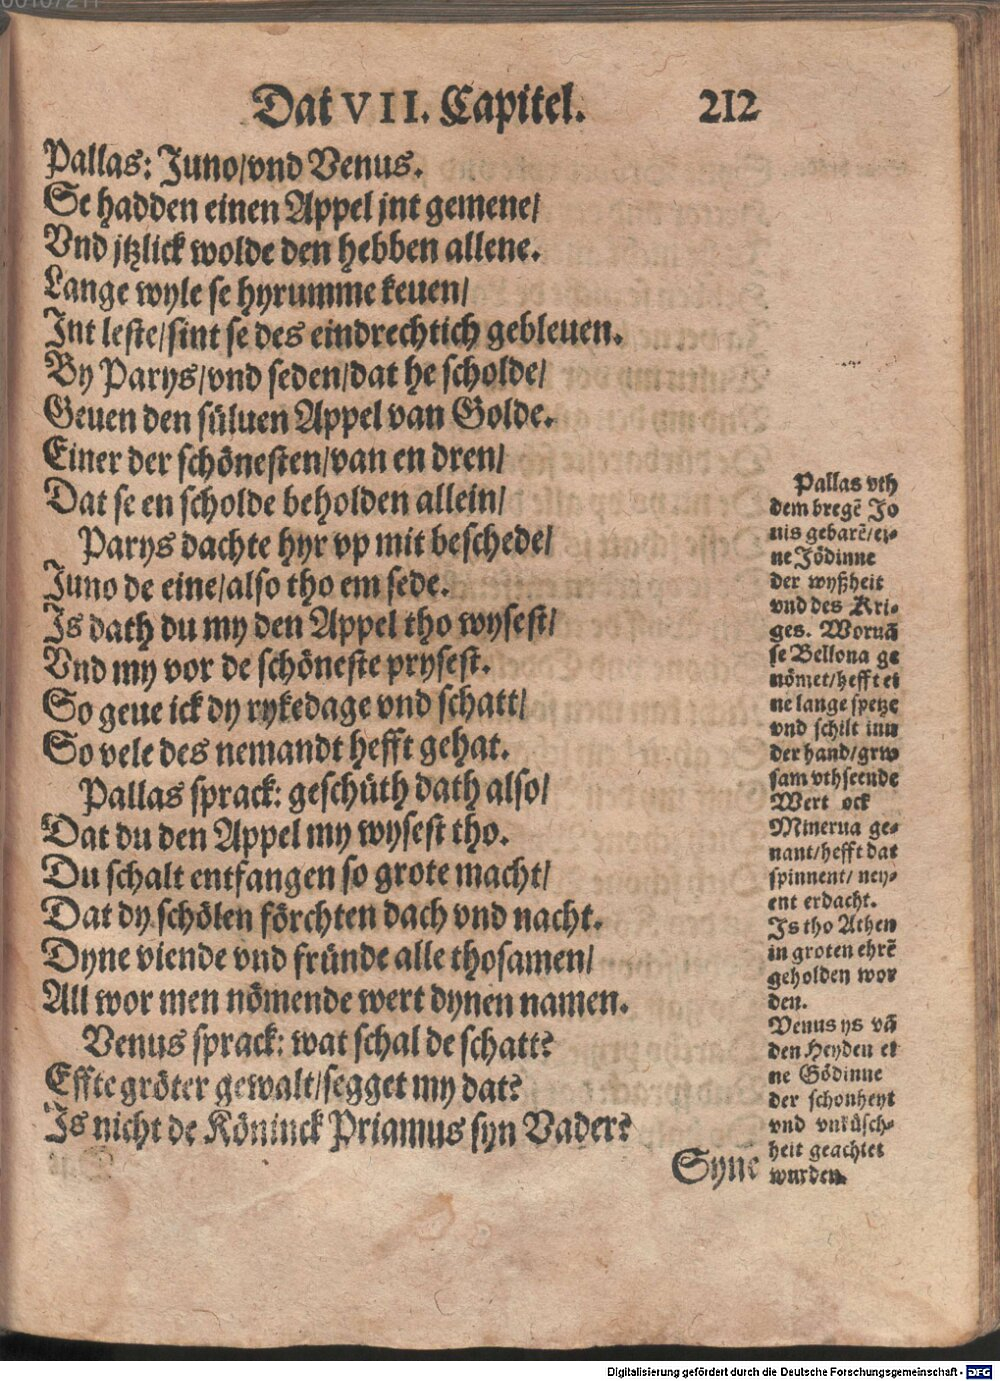 Dat VII. Capitel. 212
Pallas: Juno/vnd Venus.
Se hadden einen Appel jnt gemene/
Vnd jtzlick wolde den hebben allene.
Lange wyle se hyrumme keuen/
Jnt leste/sint se des eindrechtich gebleuen.
By Parys/vnd seden/dat he scholde/
Geuen den süluen Appel van Golde.
Einer der schönesten/van en dren/
Dat se en scholde beholden allein/
Parys dachte hyr vp mit beschede/
Juno de eine/also tho em sede.
Js dath du my den Appel tho wysest/
Vnd my vor de schöneste prysest.
So geue ick dy rykedage vnd schatt/
So vele des nemandt hefft gehat.
Pallas sprack: geschüth dath also/
Dat du den Appel my wysest tho.
Du schalt entfangen so grote macht/
Dat dy schölen förchten dach vnd nacht.
Dyne viende vnd fründe alle thosamen/
All wor men nömende wert dynen namen.
Venus sprack: wat schal de schatt?
Effte gröter gewalt/segget my dat?
Js nicht de Köninck Priamus syn Vader?
Syne
Pallas vth
dem bregē Jo
uis gebarē/ei-
ne Jödinne
der wyßheit
vnd des Kri-
ges. Worūā
se Bellona ge
nömet/hefft ei
ne lange spetze
vnd schilt inn
der hand/grw
sam vthseende
Wert ock
Minerua ge-
nant/hefft dat
spinnent/ ney-
ent erdacht.
Js tho Athen
in groten ehrē
geholden wor
den.
Venus ys vā
den Heyden ei
ne Gödinne
der schonheyt
vnd vnküsch-
heit geachtet
wurden.
00107211
Digitalisierung gefördert durch die Deutsche Forschungsgemeinschaft - DFG